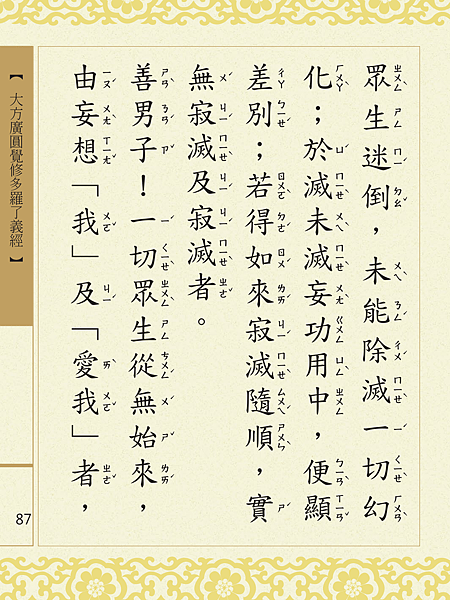 眾生迷倒，未能除滅一切幻
化；於滅未滅妄功用中，便顯
差別；若得如來寂滅隨順，實
無寂滅及寂滅者。
善男子！一切眾生從無始來，
由妄想「我」及「愛我」者，
【大方廣圓覺修多羅了義經】
87